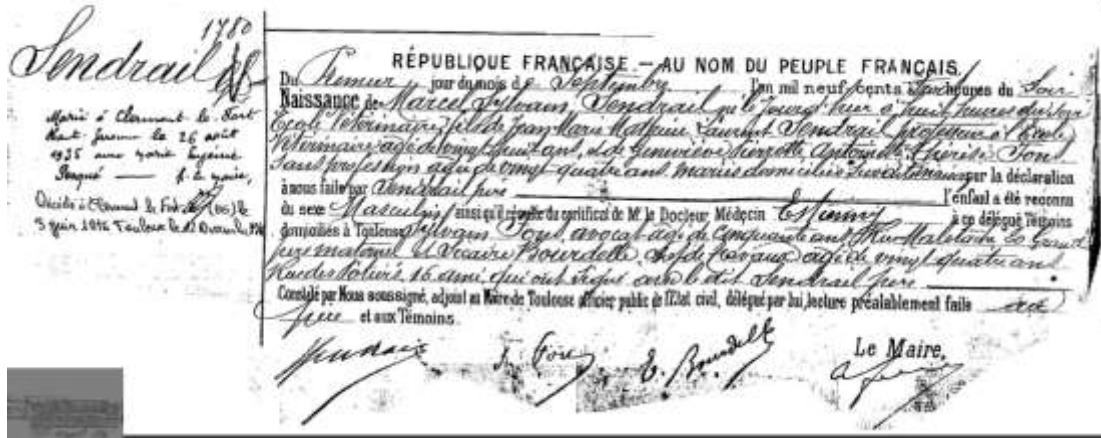 1780
Sendrail
Marié à Clermont le Fort
Haute Garonne le 26 août
1935 avec Marie Eugénie
le Maire,
Décédé à Clermont le Fort (06) le
3 juin 1976 Toulouse le 12
RÉPUBLIQUE FRANÇAISE — AU NOM DU PEUPLE FRANÇAIS.
Du Premier jour du mois de Septembre l'an mil neuf cents heures du Soir
Naissance de Marcel Sylvain Sendrail né le jour d'hier à huit heures du soir
École Vétérinaire, fils de Jean Marie Mathieu Laurent Sendrail professeur à l'École
Vétérinaire agé de vingt huit ans, et de Geneviève Pierrette Antoinette Thérèse Font
Sans profession agée de vingt quatre ans, mariés domiciliés par la déclaration
à nous faite par Sendrail père l'enfant a été reconnu
du sexe Masculin ainsi qu'il résulte du certificat de Mr. le Docteur Médecin à ce délégué Témoins
domiciliés à Toulouse Sylvain Font, avocat agé de cinquante ans, Rue 20 Grand
père maternel et Bourdelle, chef de travaux agé de vingt quatre ans
Rue des 16 ami qui ont signé avec le dit Sendrail père
Constaté par Nous soussigné, adjoint au Maire de Toulouse officier public de l'État civil, délégué par lui, lecture préalablement faite au
père et aux Témoins.
Sendrail
S. Font
E. Bourdelle
Le Maire,